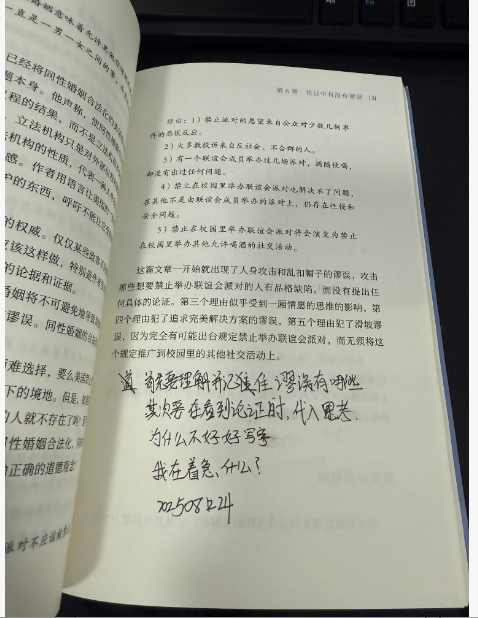 第6章 论证中有没有谬误 131
理由：1）禁止派对的愿望来自公众对少数几例事
件的恐慌反应。
2）大多数投诉来自反社会、不合群的人。
3）有一个联谊会成员举办过几场派对，酒随便喝，
却没有出过任何问题。
4）禁止在校园里举办联谊会派对也解决不了问题，
在其他不是由联谊会成员举办的派对上，仍存在性侵和
安全问题。
5）禁止在校园里举办联谊会派对将会演变为禁止
在校园里举办其他允许喝酒的社交活动。
这篇文章一开始就出现了人身攻击和乱扣帽子的谬误，攻击
那些想要禁止举办联谊会派对的人有品格缺陷，而没有提出任
何具体的论证。第三个理由似乎受到一厢情愿的思维的影响，第
四个理由犯了追求完美解决方案的谬误，第五个理由犯了滑坡谬
误，因为完全有可能出台规定禁止举办联谊会派对，而无须将这
个规定推广到校园里的其他社交活动上。
首先要理解并记住 谬误有哪些
其次要在看到论证时，代入思考.
为什么不好好写字
我在着急什么？
20250824
婚姻意味着允许
一直是一男一女之间的事
已经将同性婚姻合法化
题本身。他声称，
程的结果，而不是立
立法机构只是对
机构的性质，代表
感。作者用语言让
护的东西，呼吁不能让
的权威。仅仅某些
应该这样做，特别是
的论据和证据。
婚姻将不可避免地导致
谬误。同性婚姻的
更难选择，要么
下的境地。但是，
的人就不存在了吗？
同性婚姻合法化，
为正确的道德观念
派对不应该被禁